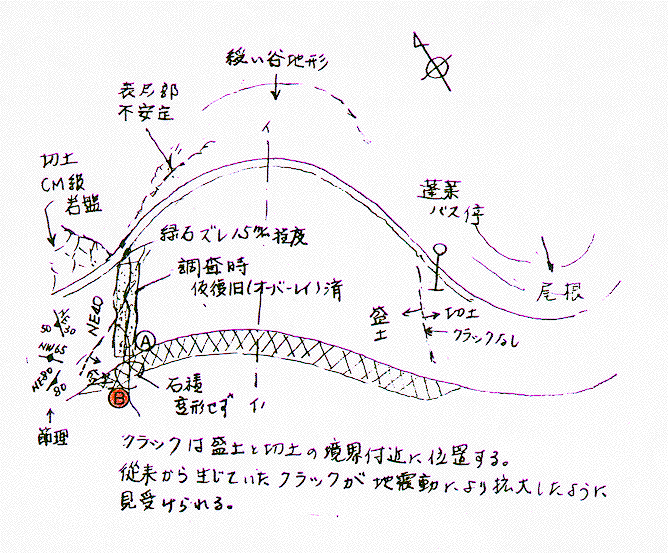 緩い谷地形
表层部
不安定
イ
切土
CM級
岩盤
蓬莱
バス停
縁石ズレ15㎜程度
尾根
調査時
仮復旧(オーバーレイ)済
NE40
盛土
切土
クラックなし
A
NE
50 30
NW65
NE80
80
盛土
B
石積
変形せず
イ
節理
クラックは盛土と切土の境界付近に位置する。
従来から生じていたクラックが地震動により拡大したように
見受けられる。